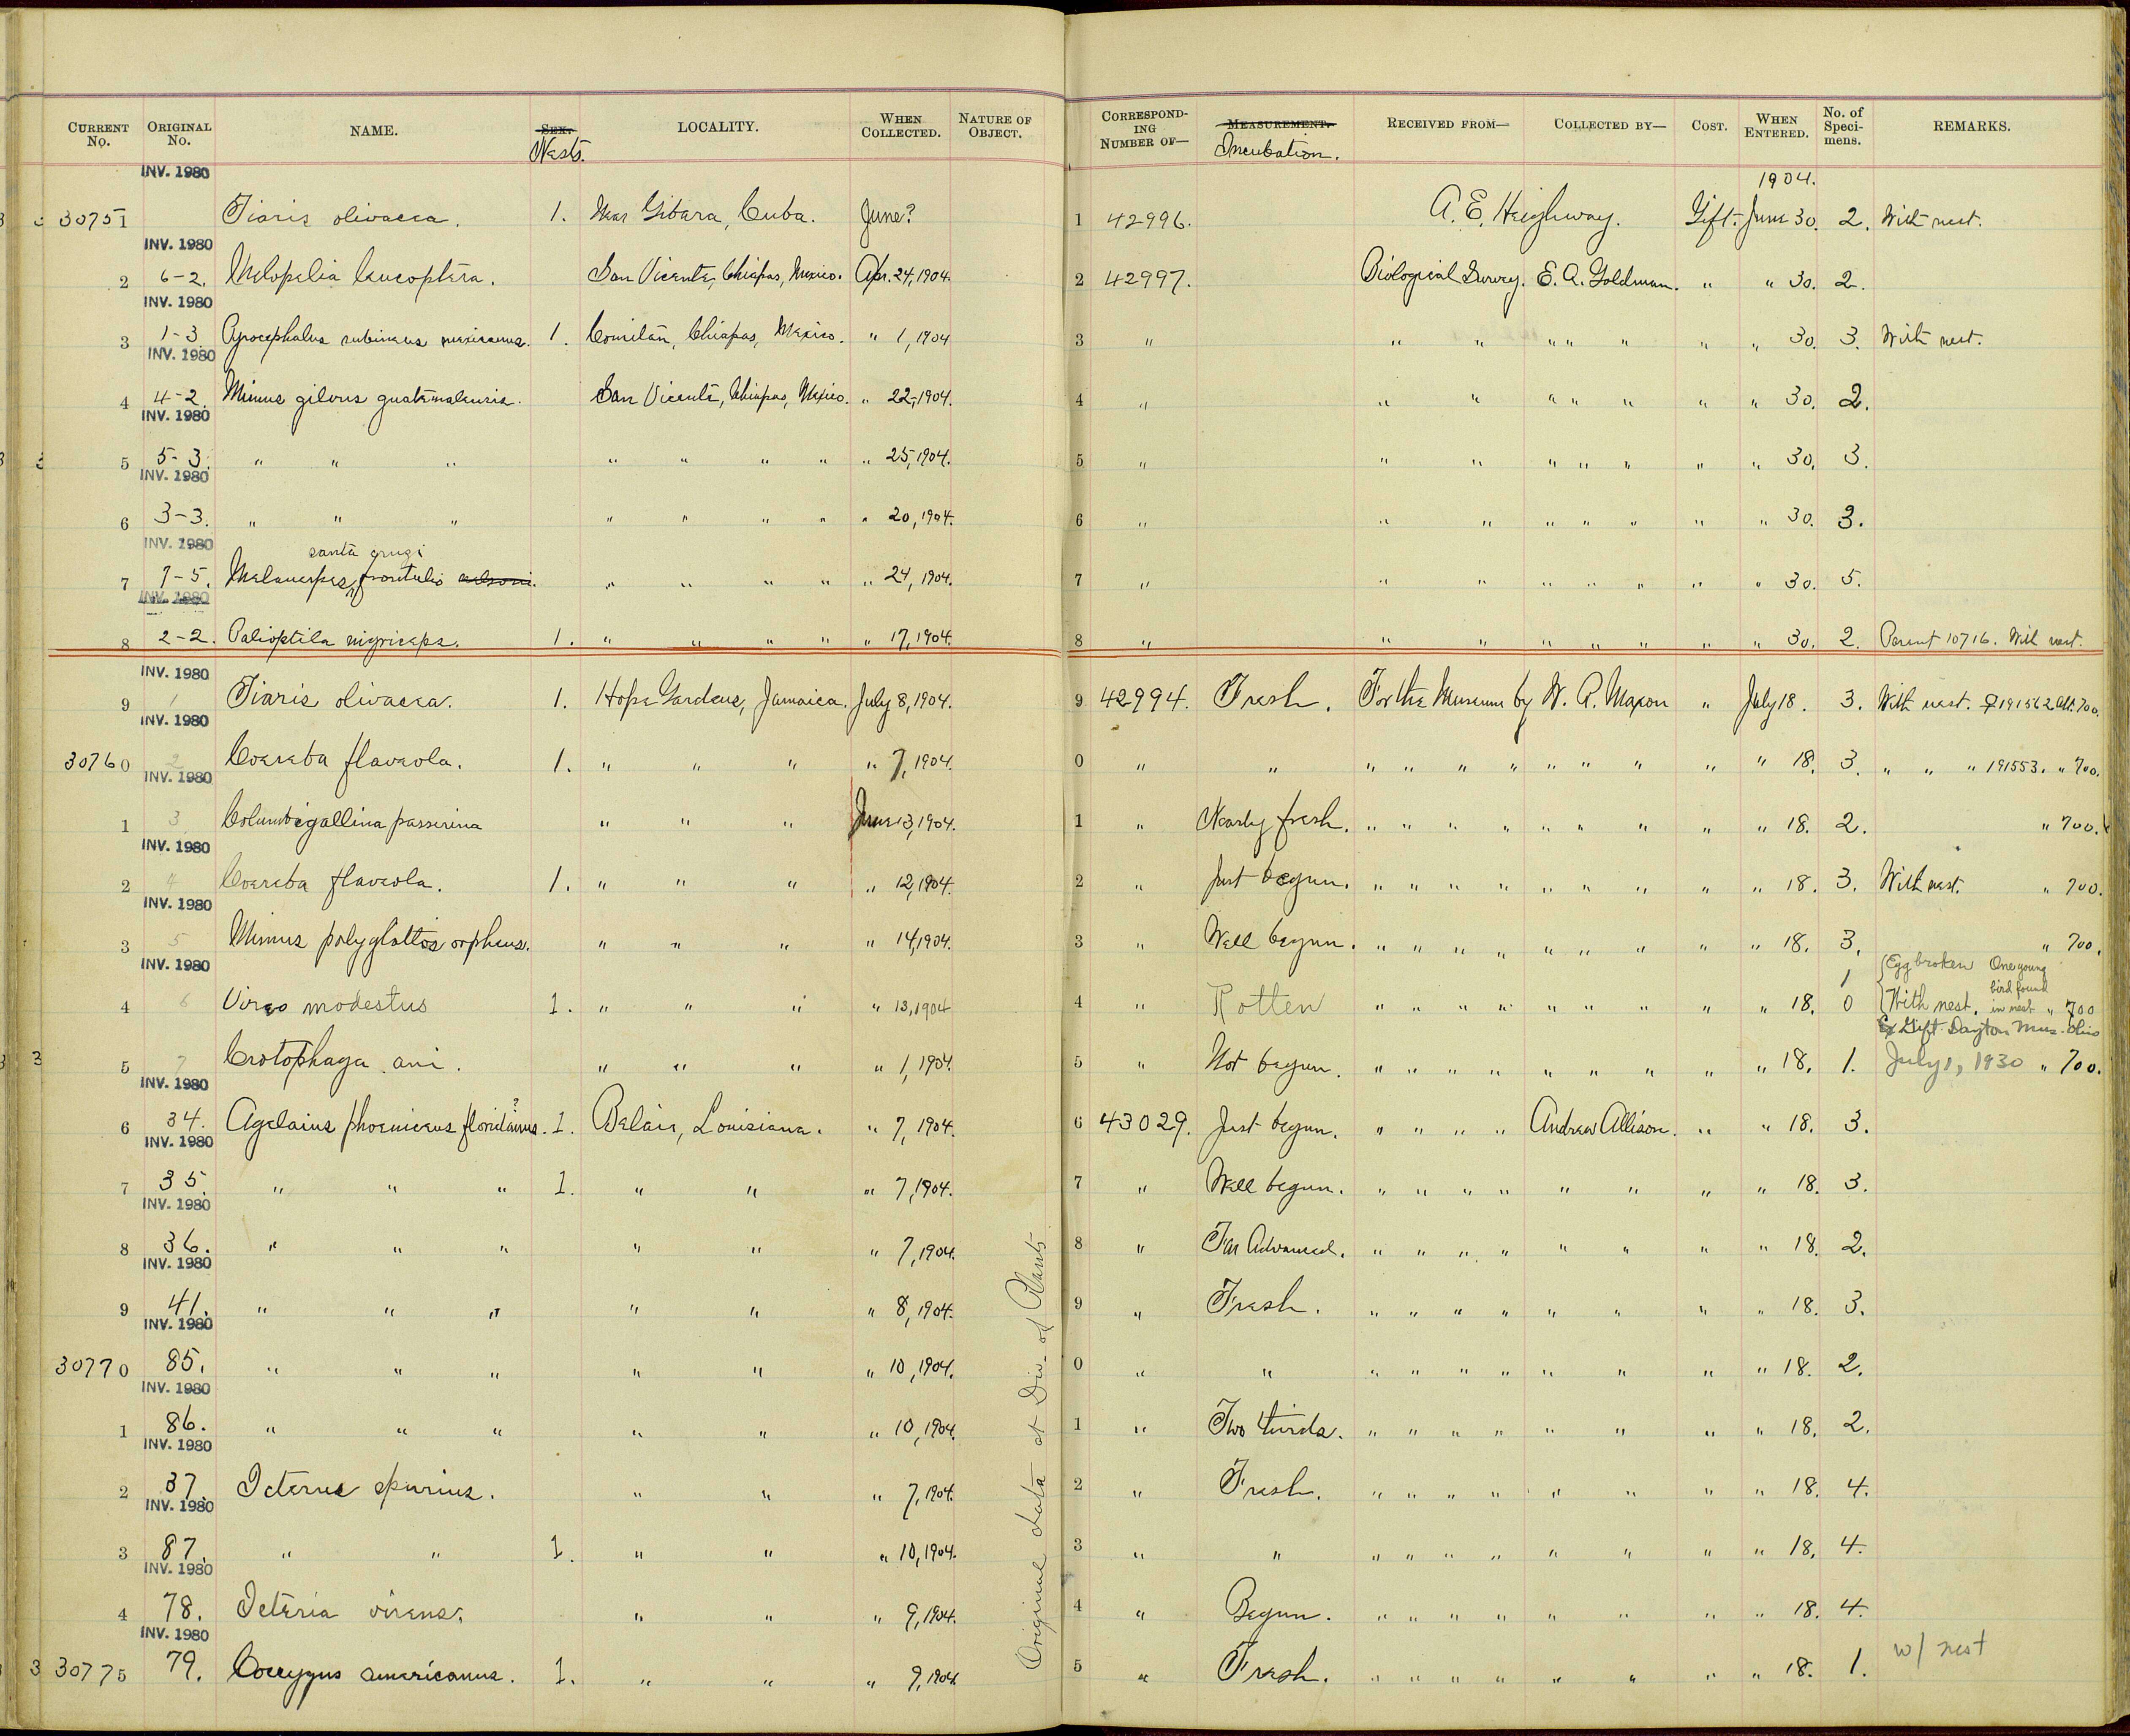 CURRENT No. ORIGINAL No. NAME. Sex. Nests. LOCALITY. WHEN COLLECTED. NATURE OF OBJECT. CORRESPONDING NUMBER OF— MEASUREMENT. Incubation. RECEIVED FROM— COLLECTED BY— COST. WHEN ENTERED. No. of Specimens. REMARKS.
INV. 1980 1904.
30751 Tiaris olivacea. 1. Near Gibara, Cuba. June? 1 42996. A. E. Heighway. Gift. June 30. 2. With nest.
INV. 1980
2 6-2. Melopelia leucoptera. San Vicente, Chiapas, Mexico. Apr. 24, 1904. 2 42997. Biological Survey. E. A. Goldman. " " 30. 2.
INV. 1980
3 1-3. Pyrocephalus rubineus mexicanus. 1. Comitan, Chiapas, Mexico. " 1, 1904 3 " " " " " " " " 30. 3. With nest.
INV. 1980
4 4-2. Mimus gilvus guatemalensis. San Vicente, Chiapas, Mexico. " 22, 1904. 4 " " " " " " " " 30. 2.
INV. 1980
5 5-3. " " " " " " " " 25, 1904. 5 " " " " " " " " 30. 3.
INV. 1980
6 3-3. " " " " " " " " 20, 1904. 6 " " " " " " " " 30. 3.
INV. 1980 santa cruzi
7 7-5. Melanerpes frontalis nelsoni. " " " " " 24, 1904. 7 " " " " " " " " 30. 5.
INV. 1980
8 2-2. Polioptila nigriceps. 1. " " " " " 17, 1904. 8 " " " " " " " " 30. 2. Parent 10716. With nest.
INV. 1980
9 1 Tiaris olivacea. 1. Hope Gardens, Jamaica. July 8, 1904. 9 42994. Fresh. For the Museum by W. R. Maxon " July 18. 3. With nest. ♀191562 Alt. 700.
INV. 1980
30760 2 Coereba flaveola. 1. " " " " 7, 1904. 0 " " " " " " " " " " " 18. 3. " " " 191553. " 700.
INV. 1980
1 3 Columbigallina passerina " " " June 13, 1904. 1 " Nearly fresh. " " " " " " " " " 18. 2. " 700.
INV. 1980
2 4 Coereba flaveola. 1. " " " " 12, 1904. 2 " Just begun. " " " " " " " " " 18. 3. With nest. " 700.
INV. 1980
3 5 Mimus polyglottos orpheus. " " " " 14, 1904. 3 " Well begun. " " " " " " " " " 18. 3. " 700.
INV. 1980 1 Egg broken One young bird found
4 6 Vireo modestus 1. " " " " 13, 1904 4 " Rotten " " " " " " " " " 18. 0 With nest. in nest " 700
Gift Dayton Mus. Ohio
5 7 Crotophaga ani. " " " " 1, 1904. 5 " Not begun. " " " " " " " " " 18. 1. July 1, 1930 " 700.
INV. 1980
6 34. Agelaius phoeniceus floridanus?. 1. Belair, Louisiana. " 7, 1904. 6 43029. Just begun. " " " " Andrew Allison. " " 18. 3.
INV. 1980
7 35. " " " 1. " " " 7, 1904. 7 " Well begun. " " " " " " " " 18. 3.
INV. 1980
8 36. " " " " " " 7, 1904. 8 " Far Advanced. " " " " " " " " 18. 2.
INV. 1980
9 41. " " " " " " 8, 1904. 9 " Fresh. " " " " " " " " 18. 3.
INV. 1980
30770 85. " " " " " " 10, 1904. 0 " " " " " " " " " " 18. 2.
INV. 1980
1 86. " " " " " " 10, 1904. 1 " Two thirds. " " " " " " " " 18. 2.
INV. 1980
2 37. Icterus spurius. " " " 7, 1904. 2 " Fresh. " " " " " " " " 18. 4.
INV. 1980
3 87. " " 1. " " " 10, 1904. 3 " " " " " " " " " " 18. 4.
INV. 1980
4 78. Icteria virens. " " " 9, 1904. 4 " Begun. " " " " " " " " 18. 4.
INV. 1980
3 30775 79. Coccyzus americanus. 1. " " " 9, 1904. 5 " Fresh. " " " " " " " " 18. 1. w/ nest
Original data at Div. of Plants